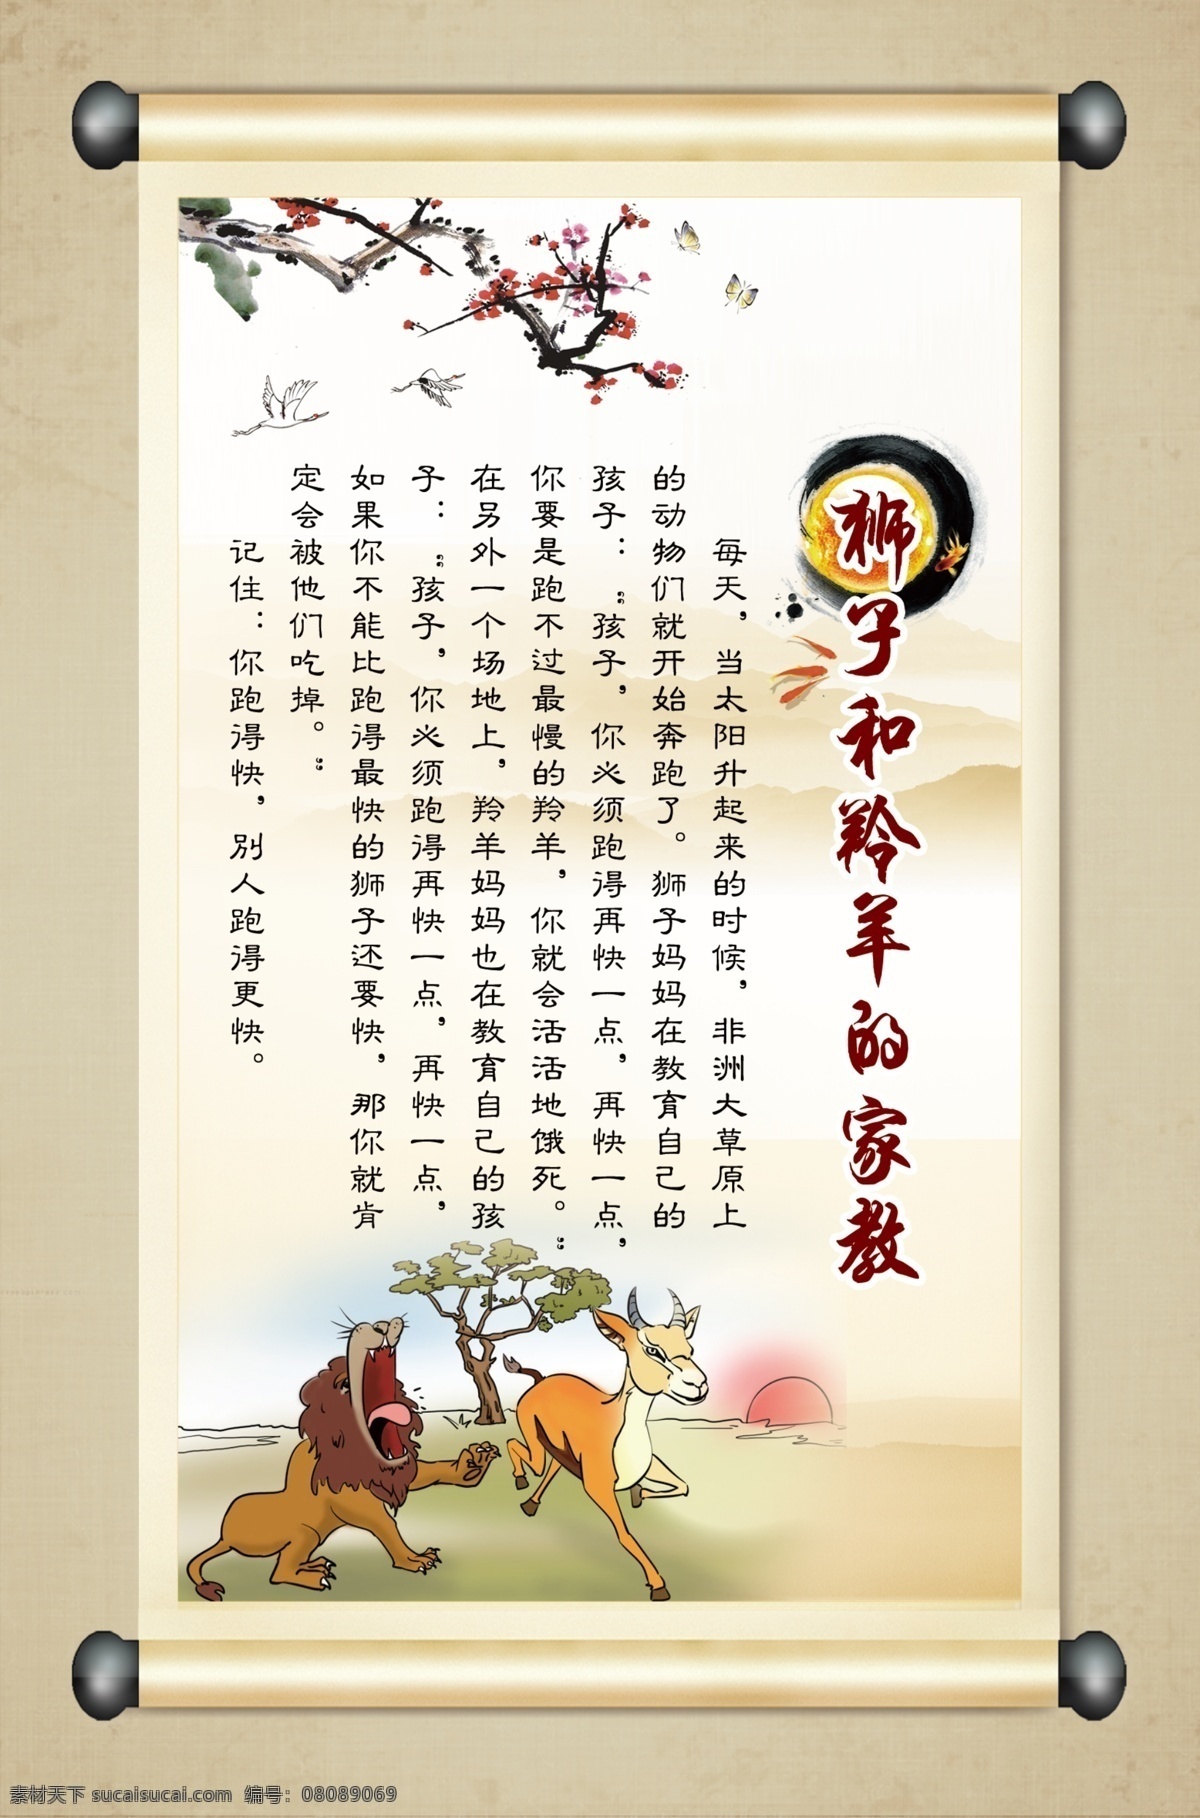 狮子和羚羊的家教
每天，当太阳升起来的时候，非洲大草原上
的动物们就开始奔跑了。狮子妈妈在教育自己的
孩子：“孩子，你必须跑得再快一点，再快一点，
你要是跑不过最慢的羚羊，你就会活活地饿死。”
在另外一个场地上，羚羊妈妈也在教育自己的孩
子：“孩子，你必须跑得再快一点，再快一点，
如果你不能比跑得最快的狮子还要快，那你就肯
定会被他们吃掉。”
记住：你跑得快，别人跑得更快。
素材天下 sucaisucai.com 编号：08089069